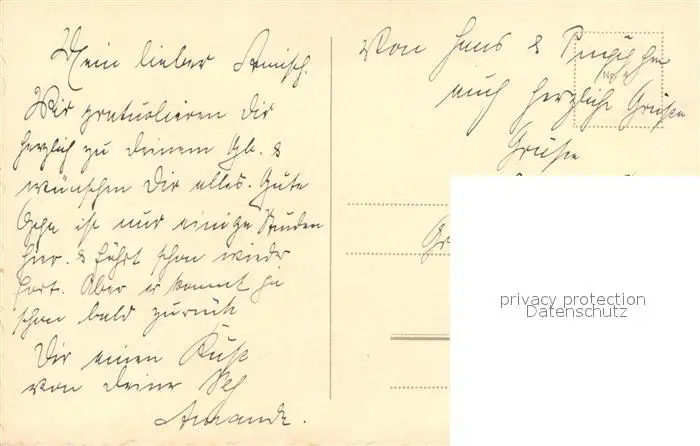 Mein lieber
Wir gratulieren dir
herzlich zu deinem Gb. &
wünschen dir alles Gute
ist nur einige Stunden
hier. & fährt schon wieder
fort. Aber er kommt ja
schon bald zurück
Dir einen Kuß
von deiner
Amanda.
Von Hans &
auch herzliche Grüße
Grüße
privacy protection
Datenschutz